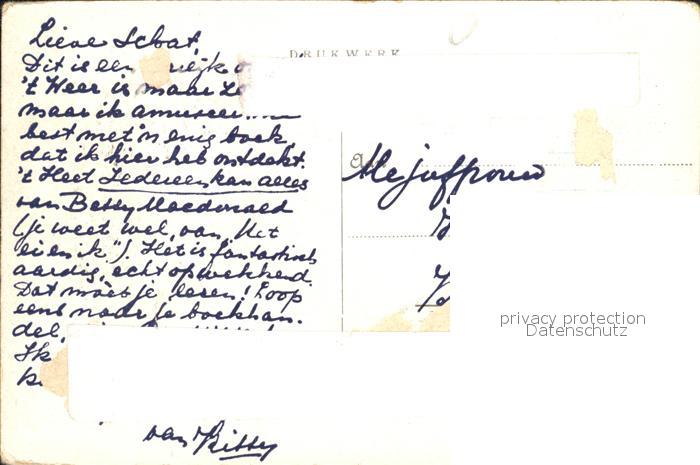 Lieve Schat,
DRUKWERK
Dit is een
't Weer is maar
maar ik amuseer
best met 'n enig boek
dat ik hier heb ontdekt.
't Heet Iedereen kan alles
van Betty Macdonald
(je weet wel, van „Het
ei en ik"). Het is fantastisch
aardig, echt opwekkend.
Dat moet je lezen! Loop
eens naar je boekhan-
del,
Ik
van Kitty
Aan
Mejuffrouw
privacy protection
Datenschutz